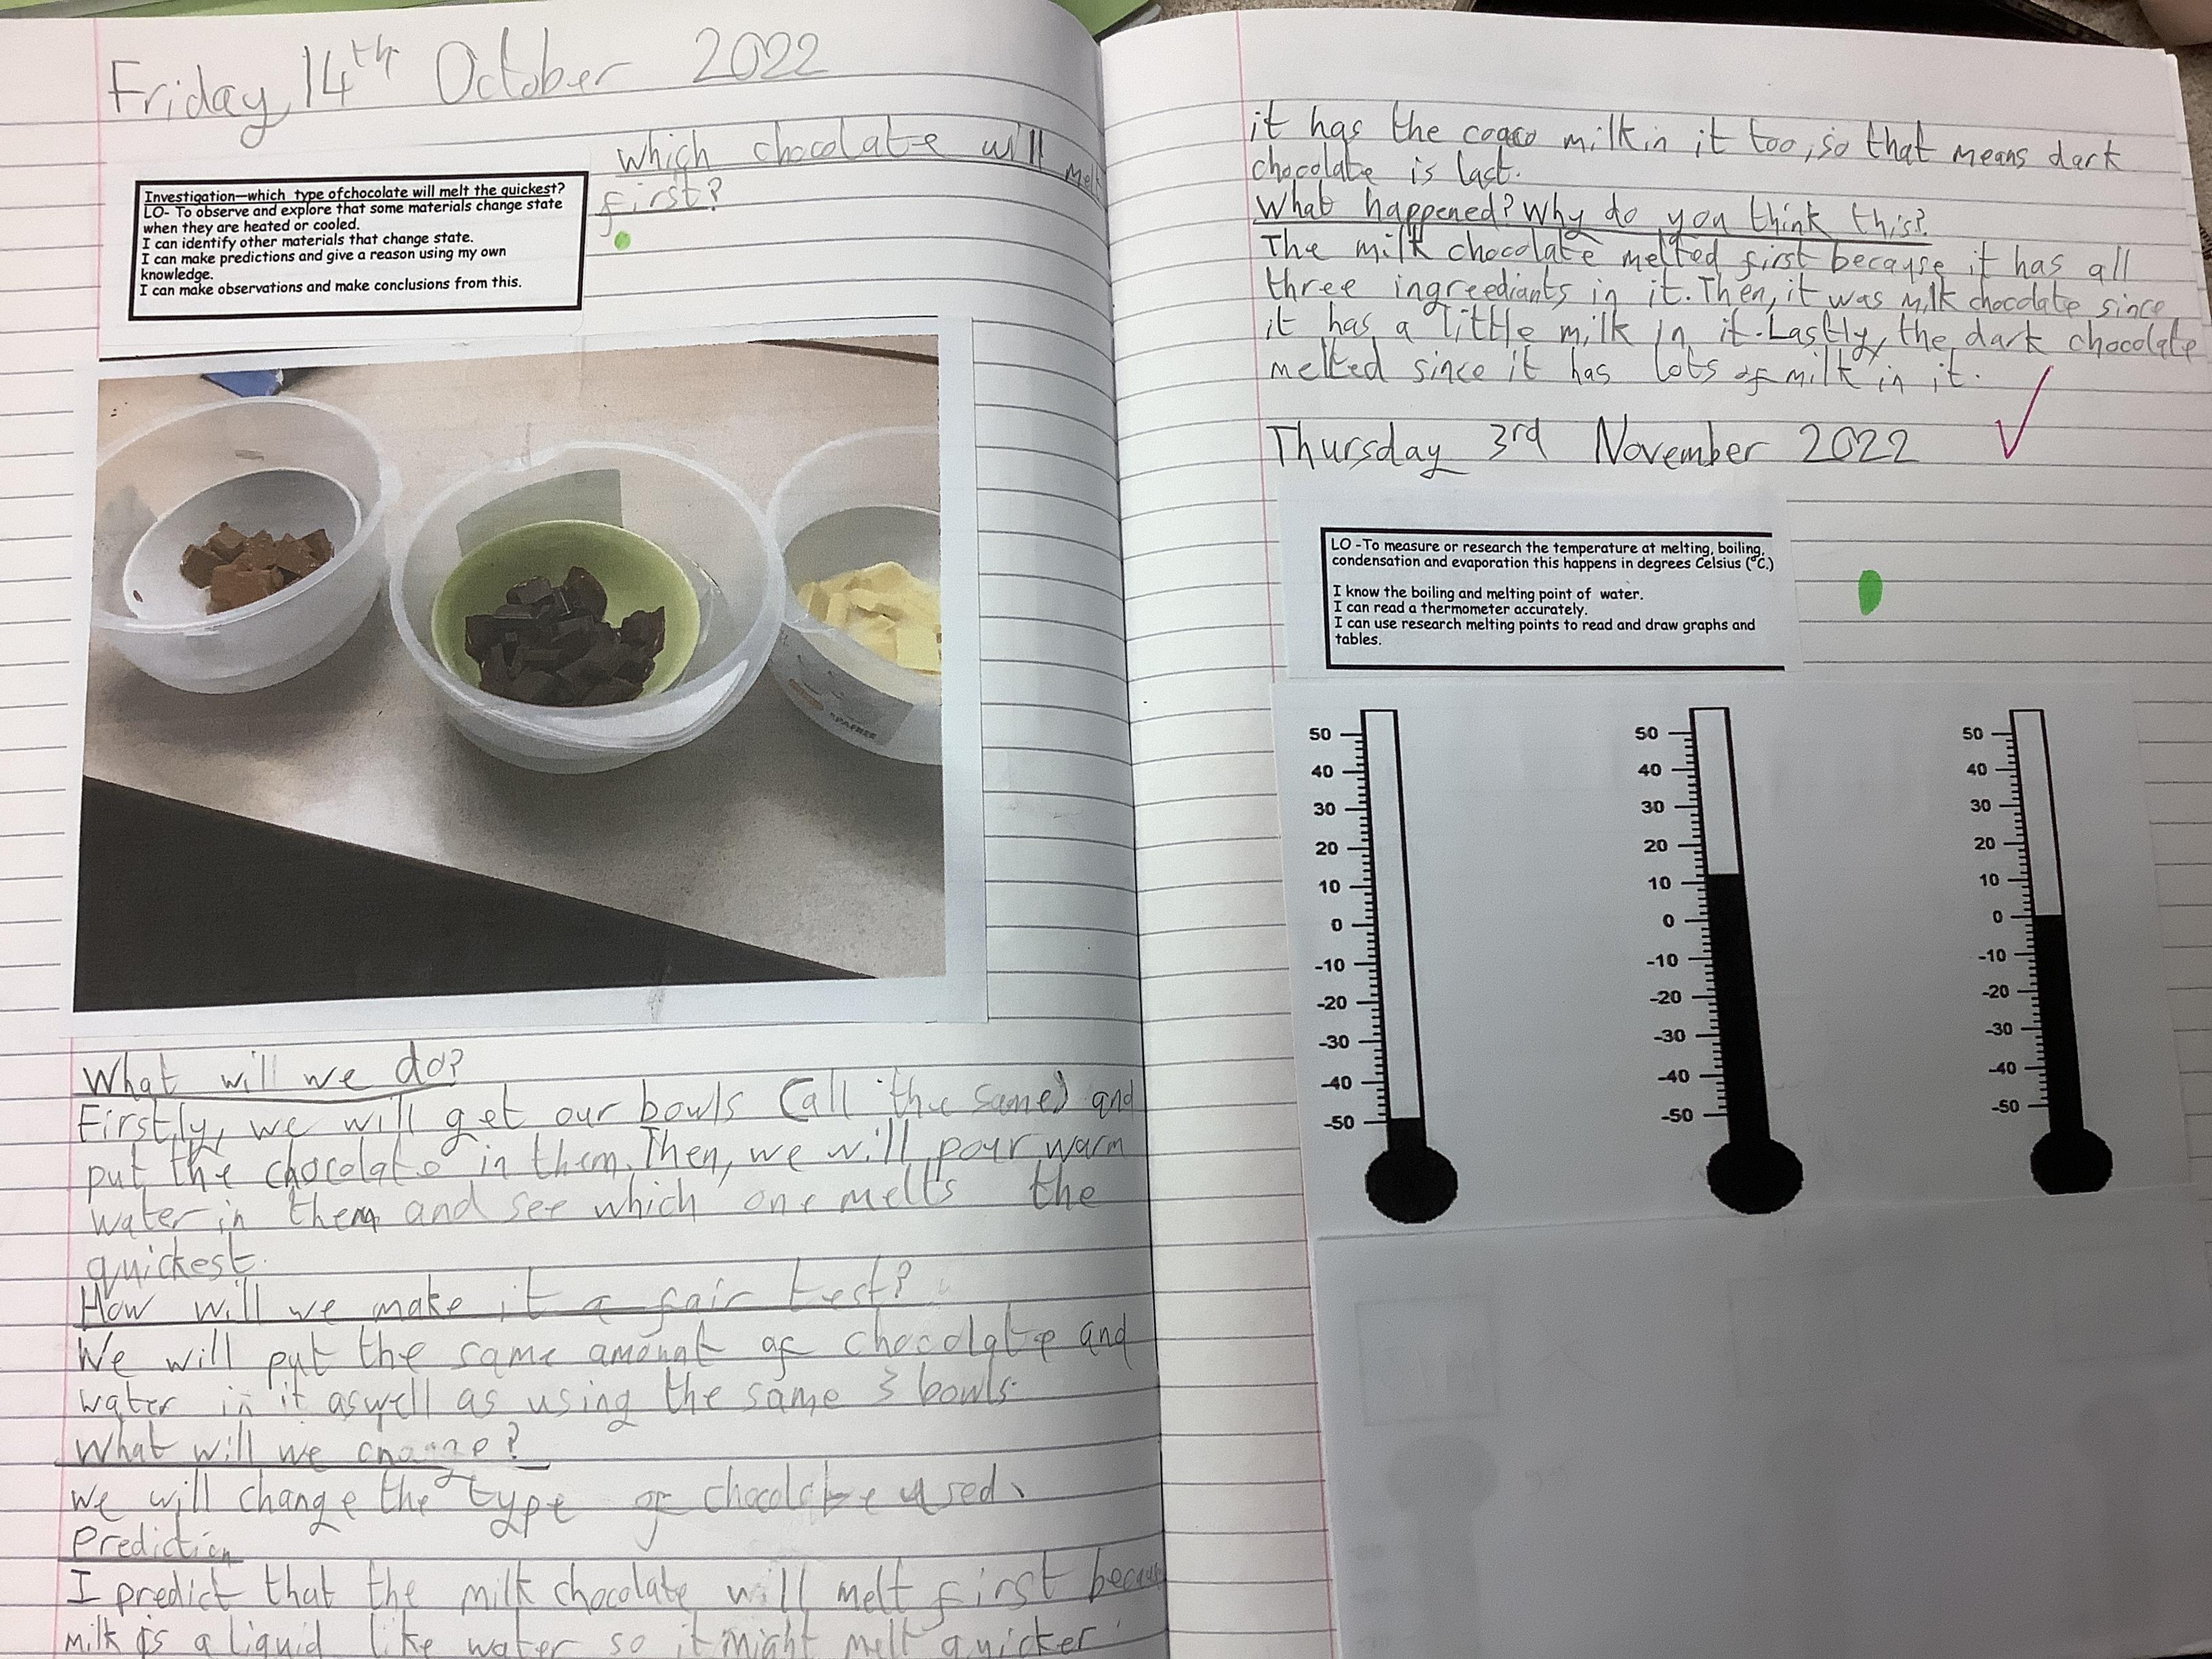 Friday, 14th October 2022
Which chocolate will melt
first?
Investigation—which type ofchocolate will melt the quickest?
LO- To observe and explore that some materials change state
when they are heated or cooled.
I can identify other materials that change state.
I can make predictions and give a reason using my own
knowledge.
I can make observations and make conclusions from this.
What will we do?
Firstly, we will get our bowls (all the same) and
put the chocolate in them. Then, we will pour warm
water in them and see which one melts the
quickest.
How will we make it a fair test?
We will put the same amount of chocolate and
water in it aswell as using the same 3 bowls.
What will we change?
We will change the type of chocolate used.
Prediction
I predict that the milk chocolate will melt first because
milk is a liquid like water so it might melt quicker
it has the milk in it too, so that means dark
chocolate is last.
What happened? Why do you think this?
The milk chocolate melted first because it has all
three ingreediants in it. Then, it was milk chocolate since
it has a little milk in it. Lastly, the dark chocolate
melted since it has lots of milk in it.
Thursday 3rd November 2022
LO -To measure or research the temperature at melting, boiling,
condensation and evaporation this happens in degrees Celsius (°C.)
I know the boiling and melting point of water.
I can read a thermometer accurately.
I can use research melting points to read and draw graphs and
tables.
50 50 50
40 40 40
30 30 30
20 20 20
10 10 10
0 0 0
-10 -10 -10
-20 -20 -20
-30 -30 -30
-40 -40 -40
-50 -50 -50